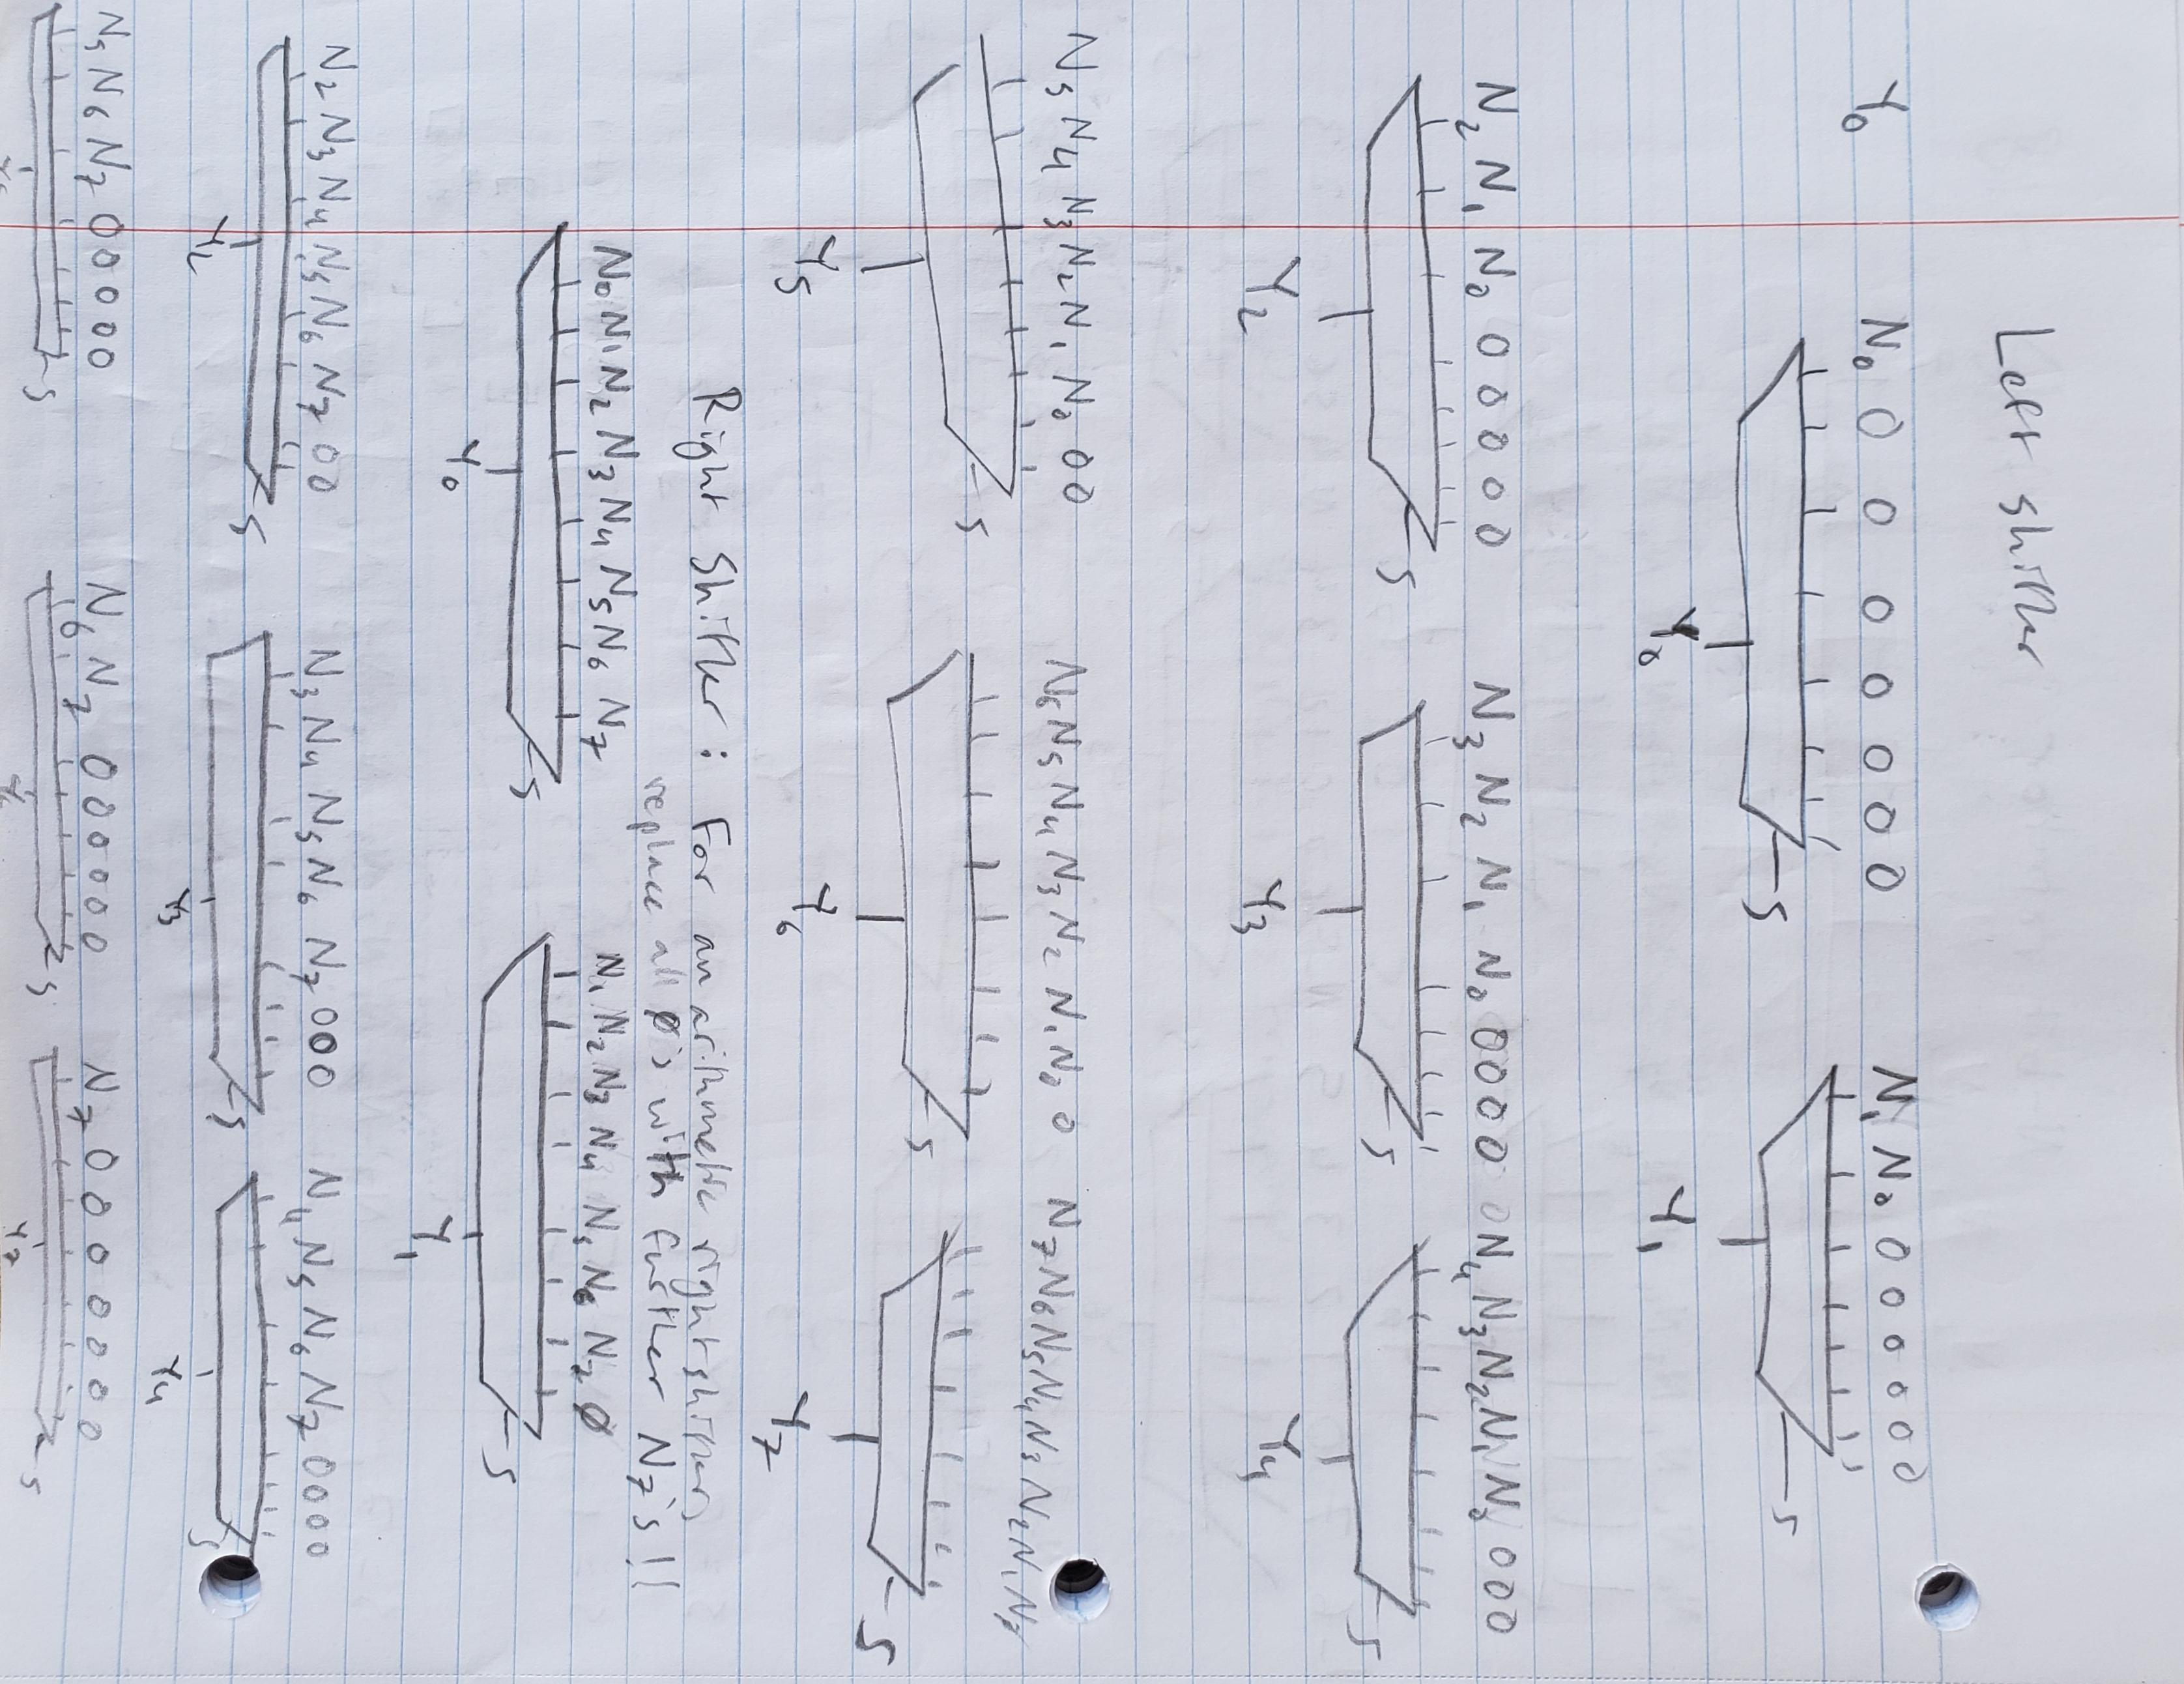 Left shifter
Y0 N0 0 0 0 0 0 0 0 N1 N0 0 0 0 0 0 0
S S
Y0 Y1
N2 N1 N0 0 0 0 0 0 N3 N2 N1 N0 0 0 0 0 N4 N3 N2 N1 N0 0 0 0
S S S
Y2 Y3 Y4
N5 N4 N3 N2 N1 N0 0 0 N6 N5 N4 N3 N2 N1 N0 0 N7 N6 N5 N4 N3 N2 N1
S S S
Y5 Y6 Y7
Right Shifter: For an arithmetic right shifter,
replace all 0's with further N7's!!
N0 N1 N2 N3 N4 N5 N6 N7 N1 N2 N3 N4 N5 N6 N7 0
S S
Y0 Y1
N2 N3 N4 N5 N6 N7 0 0 N3 N4 N5 N6 N7 0 0 0 N4 N5 N6 N7 0 0 0 0
S S S
Y2 Y3 Y4
N5 N6 N7 0 0 0 0 0 N6 N7 0 0 0 0 0 0 N7 0 0 0 0 0 0 0
S S S
Y7